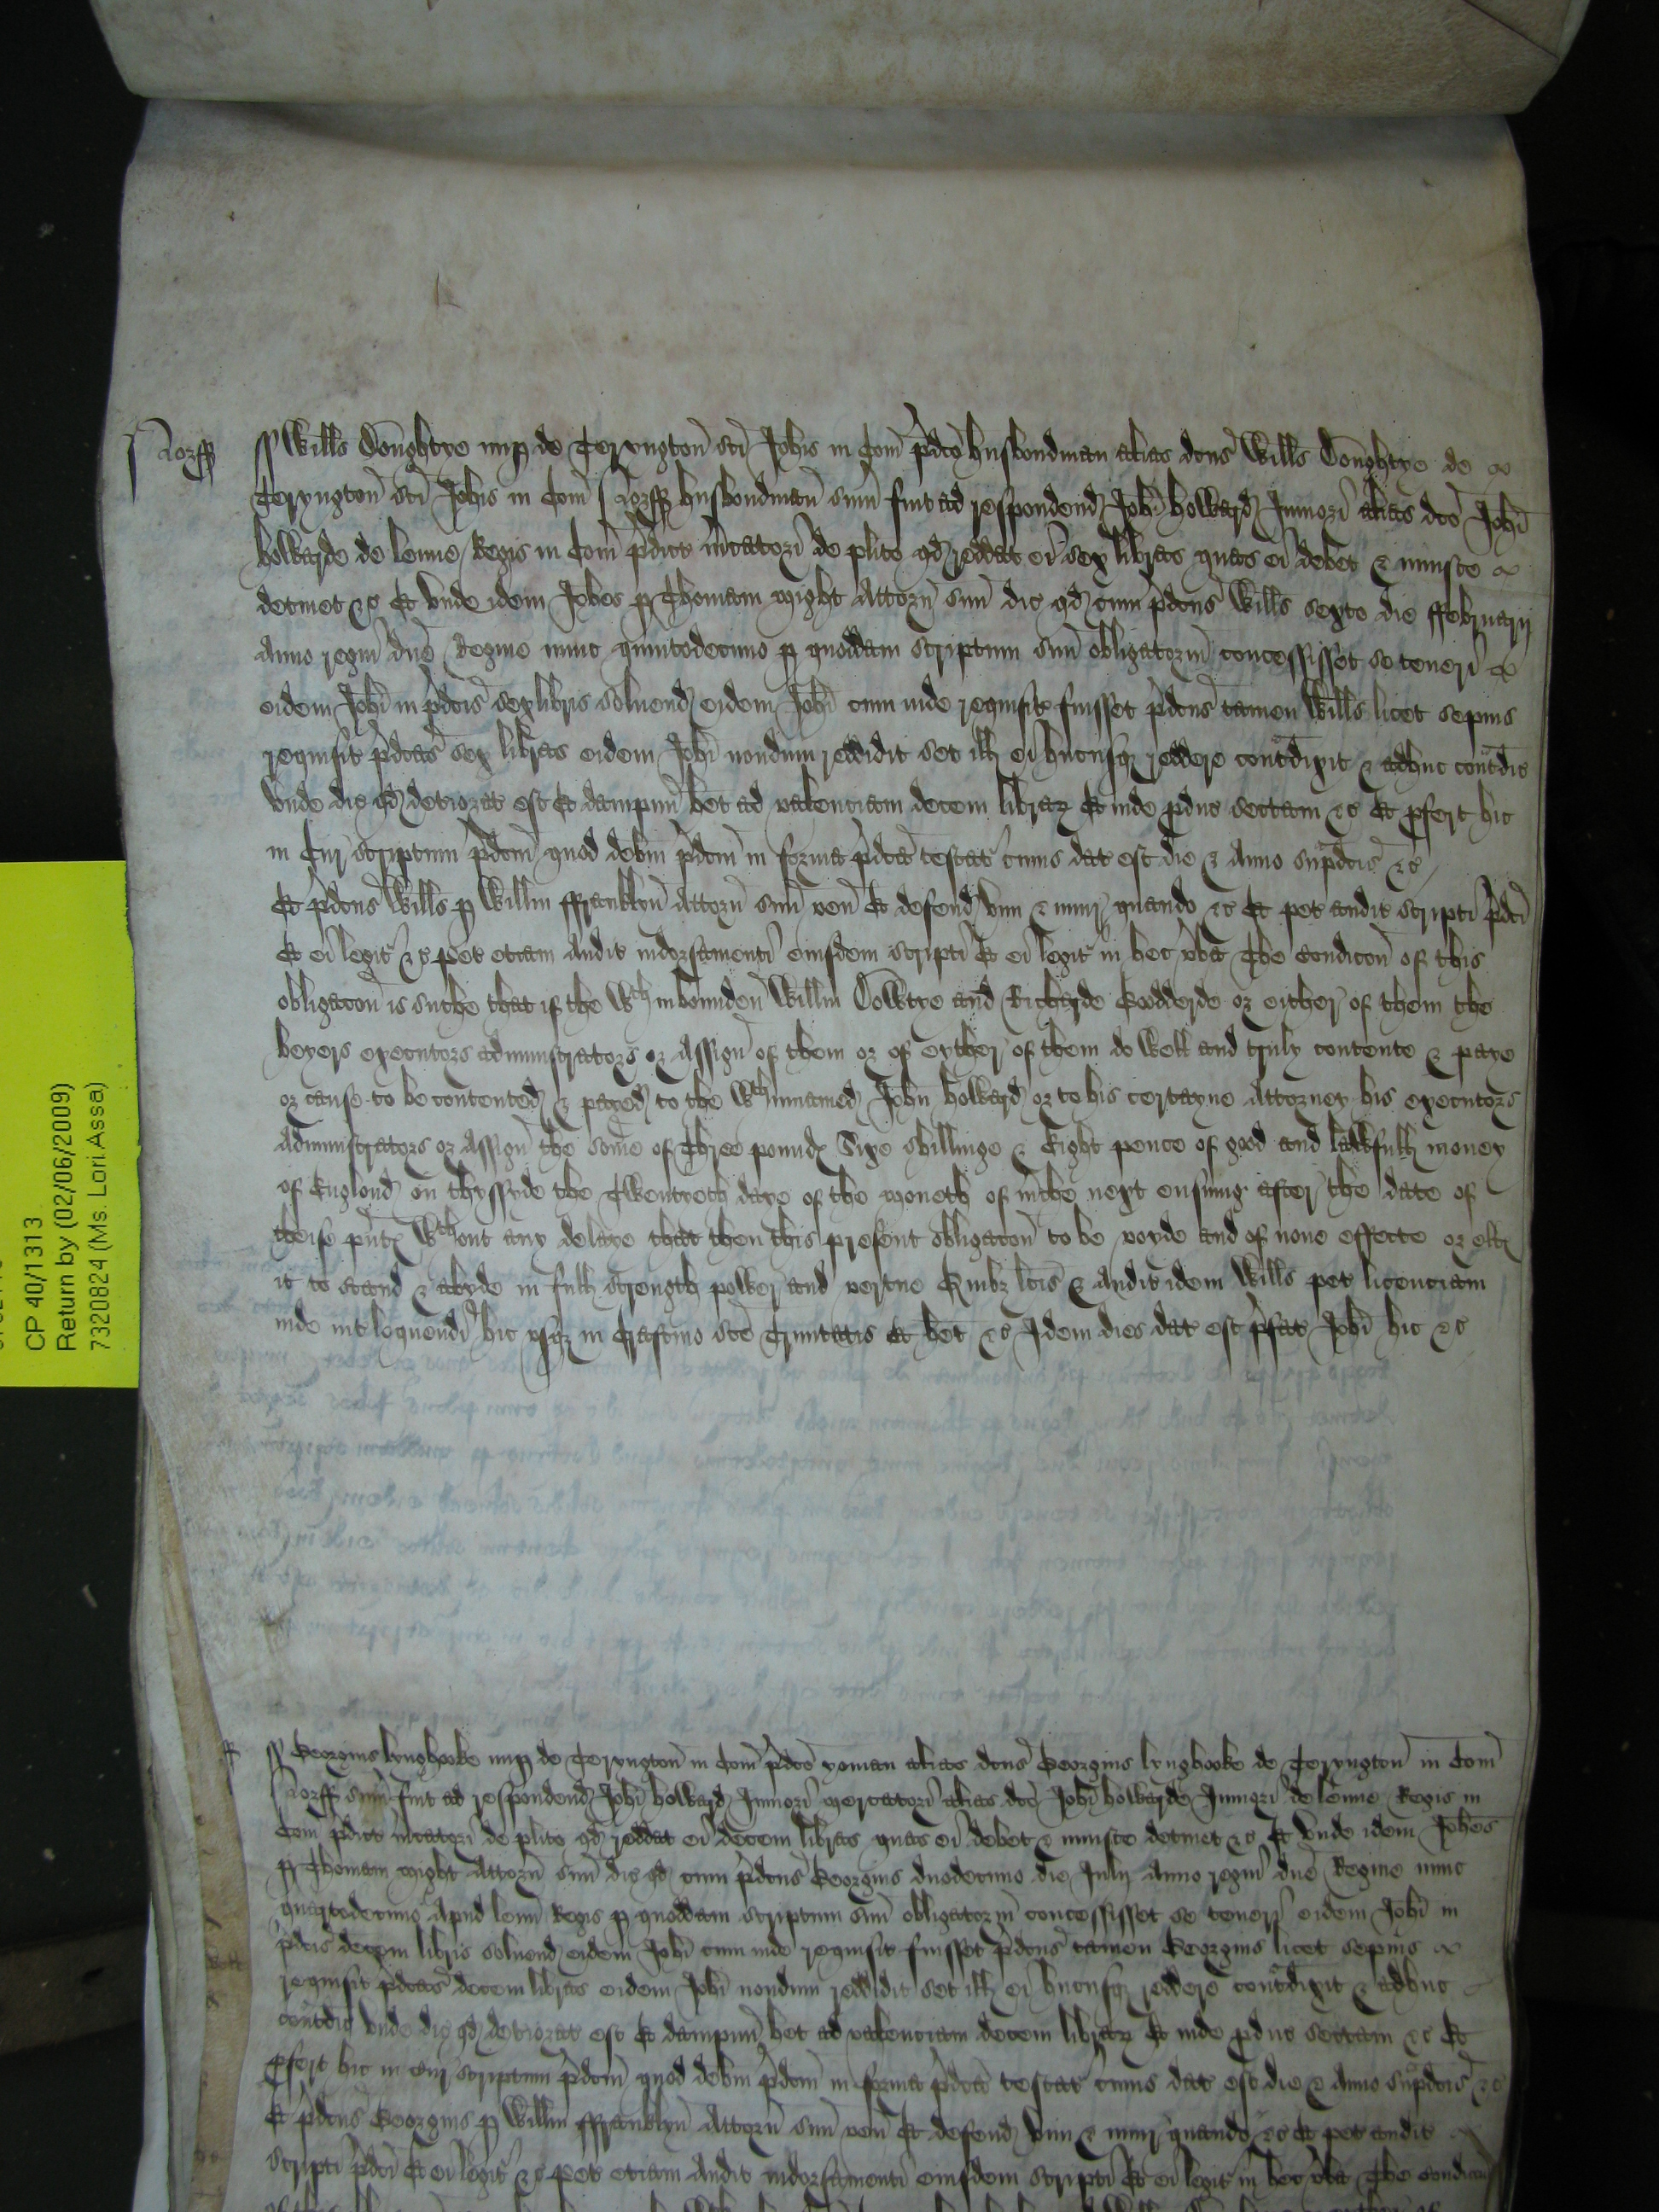 Norff
ss Wills Doughtye nup de Teryngton sci Johis in Com pdco husbondman alias dcus Wills Doughtye de
Teryngton sci Johis in Com Norff husbondman sum fuit ad respondend Johi howard Juniori alias dco Johi
howarde de lenne Regis in Com pdict mcatori de plito qd reddat ei sex libras quas ei debet & iniuste
detinet &c Et unde idem Johes p Thomam might Attorn suu dic qd cum pdcus Wills sexto die ffebruarij
Anno regni dne Regine nunc quintodecimo p quoddam scriptum suu obligatoriu concessisset se teneri
eidem Johi in pdcis sex libris soluend eidem Johi cum inde requisit fuisset pdcus tamen Wills licet sepius
requisit pdcas sex libras eidem Johi nondum reddidit set ill ei hucusq reddere contdixit & adhuc contdic
unde dic qd deteriorat est Et dampnu het ad valenciam decem librar Et inde pduc sectam &c Et pfert hic
in Cur scriptum pdcm quod debm pdcm in forma pdca testat cuius dat est die & Anno supdcis &c
Et pdcus Wills p Willm ffranklyn Attorn suu ven Et defend vim & iniur quando &c Et pet audit scripti pdci
Et ei legit &c pet etiam Audit indorsamenti eiusdem scripti Et ei legit in hec vba The Condicon of this
obligacon is suche that if the Wthinbounden Willm Dowtye and Richarde Goodderde or either of them the
heyers executors administrators or Assign of them or of eyther of them do well and truly contente & paye
or cause to be contented & payed to the Wthinnamed John howard or to his certayne Attorney his executors
Administrators or Assign the some of Three pound Sixe shillinge & Eight pence of good and lawfull money
of Englond on thyssyde the Twentyeth daye of the moneth of mche next ensuing after the date of
theise pnt Wthout any delaye that then this present obligacon to be voyde and of none effecte or els
it to stand & abyde in full strength power and vertue Quibz lcis & Audit idem Wills pet licenciam
inde int loquendi hic usq in Crastino sce Trinitatis Et het &c Idem dies dat est pfat Johi hic &c
ss Georgius lynghooke nup de Teryngton in Com pdco yoman alias dcus Georgius lynghooke de Teryngton in Com
Norff sum fuit ad respondend Johi howard Juniori mercatori alias dco Johi howarde Juniori de lenne Regis in
Com pdict mcatori de plito qd reddat ei decem libras quas ei debet & iniuste detinet &c Et unde idem Johes
p Thomam might Attorn suu dic qd cum pdcus Georgius duodecimo die Julij Anno regni dne Regine nunc
quartodecimo Apud lenn Regis p quoddam scriptum suu obligatoriu concessisset se teneri eidem Johi in
pdcis decem libris soluend eidem Johi cum inde requisit fuisset pdcus tamen Georgius licet sepius
requisit pdcas decem libras eidem Johi nondum reddidit set ill ei hucusq reddere contdixit & adhuc
contdic unde dic qd deteriorat est Et dampnu het ad valenciam decem librar Et inde pduc sectam &c Et
pfert hic in Cur scriptum pdcm quod debm pdcm in forma pdca testat cuius dat est die & Anno supdcis &c
Et pdcus Georgius p Willm ffranklyn Attorn suu ven Et defend vim & iniur quando &c Et pet audit
scripti pdci Et ei legit &c pet etiam Audit indorsamenti eiusdem scripti Et ei legit in hec vba The Condicon
CP 40/1313
Return by (02/06/2009)
73220824 (Ms. Lori Assa)